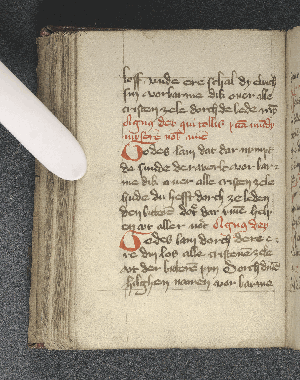 loff vnde ere schal dy ewich
syn vorbarme dik ouer alle
cristen zele dorch de lede
Agnus dei qui tollis pccā mūdi
miserere nob
Godes lam dat dar nympt
de sunde der werlt vor bar
me dik ouer alle cristen zele
vnde du hefft dorch ze leden
den bitteren dot dar vmme help
en vt aller not Agnus dei
Godes lam dorch dere e
re dyn los alle cristene zele
vt der bitteren pyn Dorch dinē
hilghen namen vor barme